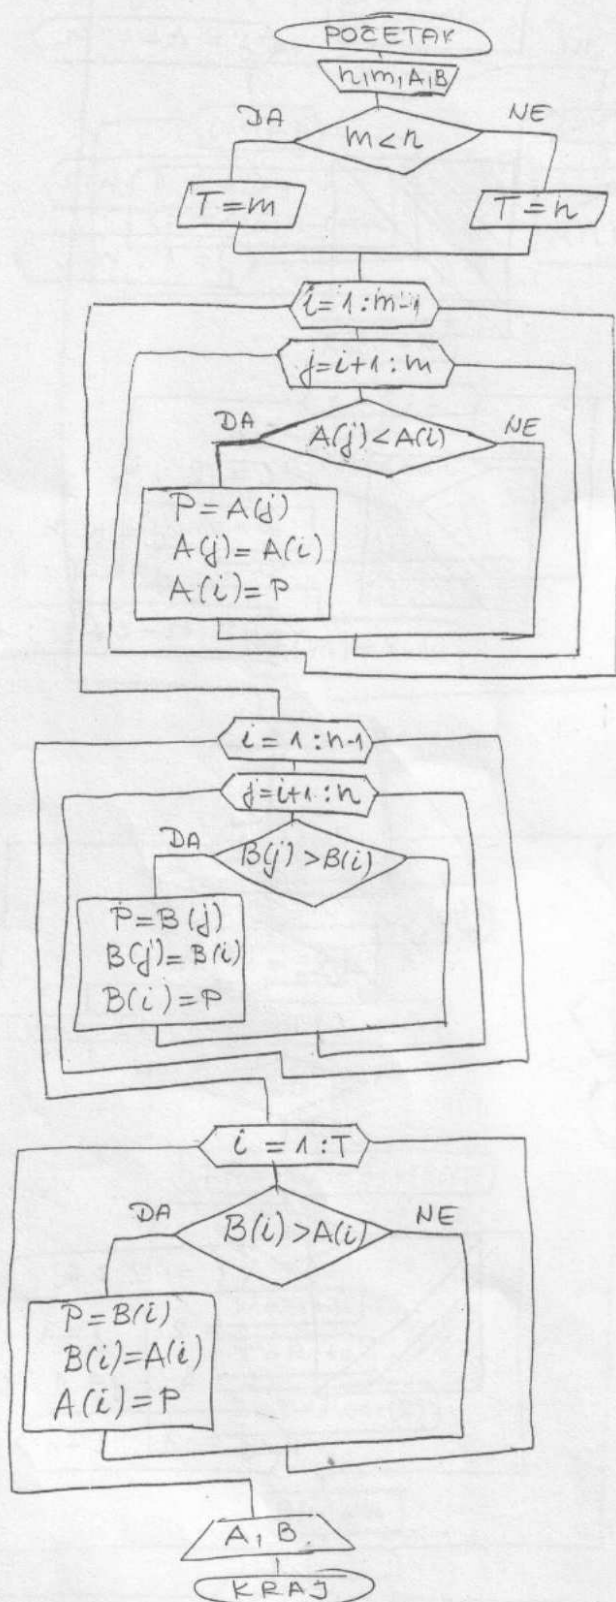 POČETAK
n,m,A,B
DA
NE
m<n
T=m
T=n
i=1:m-1
j=i+1:m
DA
NE
A(j)<A(i)
P=A(j)
A(j)=A(i)
A(i)=P
i=1:n-1
j=i+1:n
DA
B(j)>B(i)
P=B(j)
B(j)=B(i)
B(i)=P
i=1:T
DA
NE
B(i)>A(i)
P=B(i)
B(i)=A(i)
A(i)=P
A, B
KRAJ